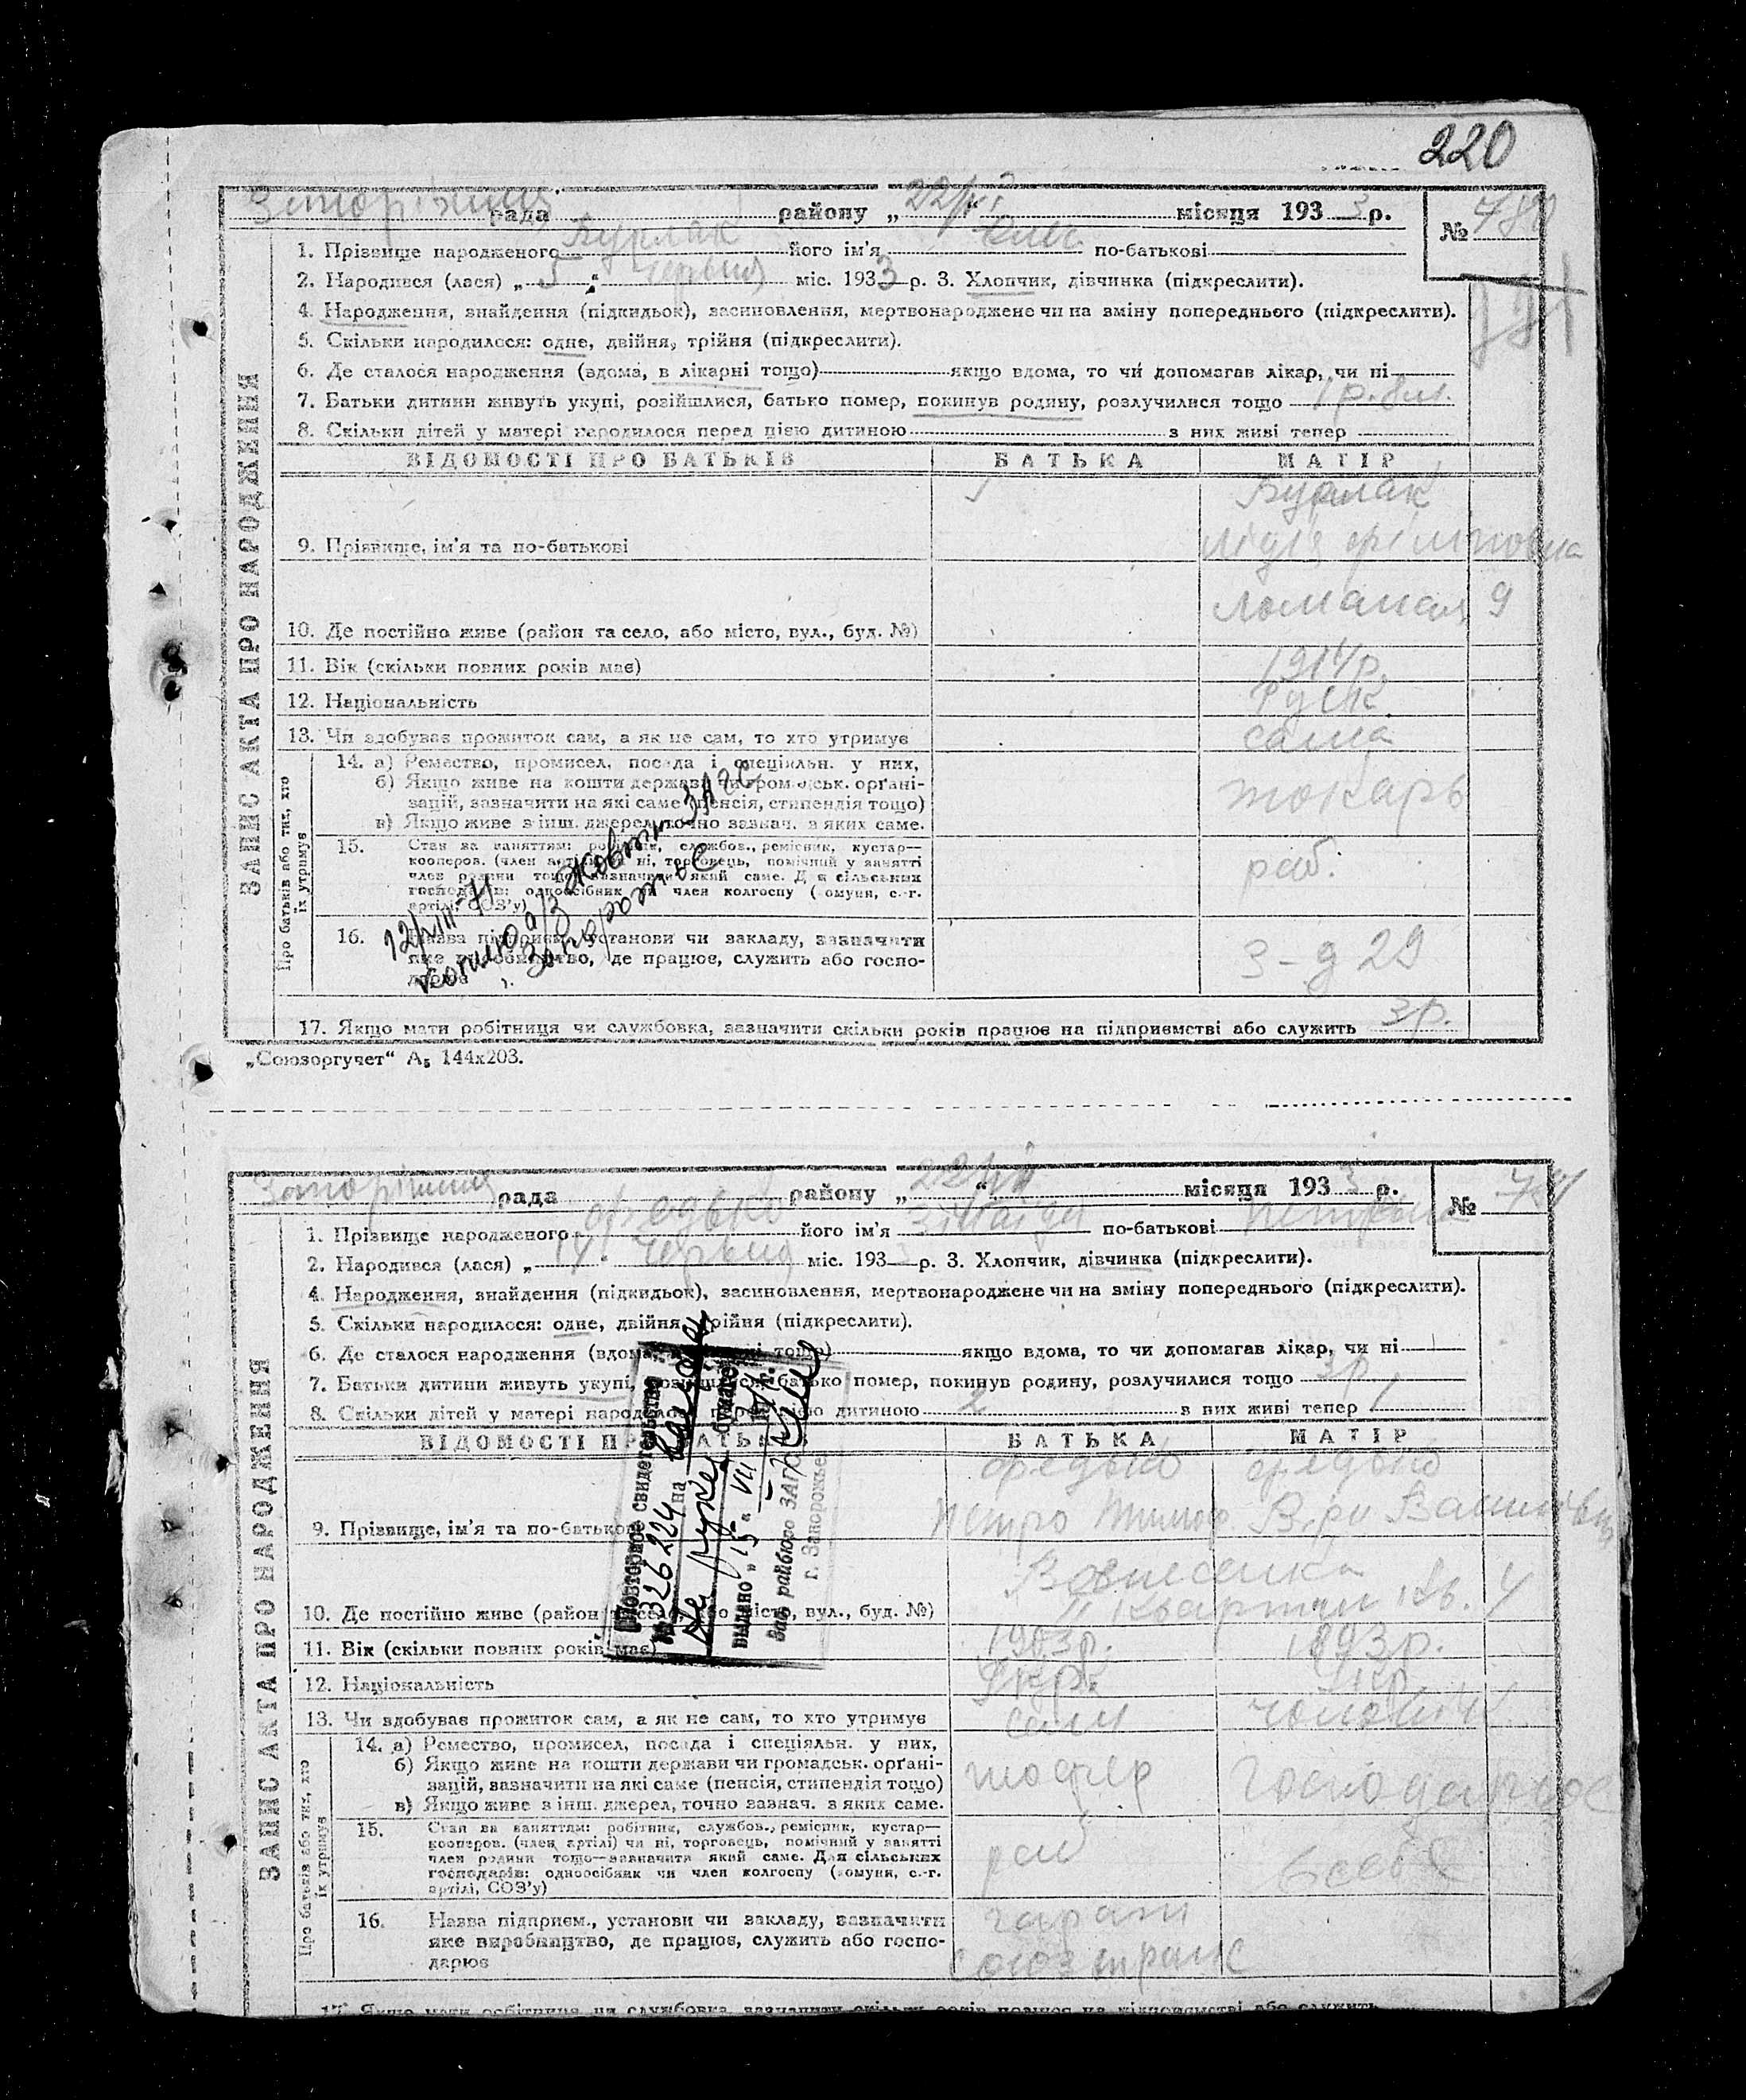 220
Запоріжжя рада району „22/VI“ місяця 1933 р. №
1. Прізвище народженого Бурлак його ім'я по-батькові
2. Народився (лася) „5“ червня міс. 1933 р. 3. Хлопчик, дівчинка (підкреслити).
4. Народження, знайдення (підкидьок), засиновлення, мертвонароджене чи на зміну попереднього (підкреслити).
5. Скільки народилося: одне, двійня, трійня (підкреслити).
6. Де сталося народження (вдома, в лікарні тощо) якщо вдома, то чи допомагав лікар, чи ні
7. Батьки дитини живуть укупі, розійшлися, батько помер, покинув родину, розлучилися тощо 1 р.
8. Скільки дітей у матері народилося перед цією дитиною з них живі тепер
ВІДОМОСТІ ПРО БАТЬКІВ БАТЬКА МАТІР
Бурлак
9. Прізвище, ім'я та по-батькові Лідія
10. Де постійно живе (район та село, або місто, вул., буд. №) 9
11. Вік (скільки повних років має) 1914р.
12. Національність Руск.
13. Чи здобуває прожиток сам, а як не сам, то хто утримує сама
14. а) Ремество, промисел, посада і спеціяльн. у них,
б) Якщо живе на кошти держави чи громадськ. орґані-
зацій, зазначити на які саме (пенсія, стипендія тощо) токарь
в) Якщо живе з інш. джерел, точно зазнач. з яких саме.
15. Стан за заняттям: робітник, службов., ремісник, кустар—
кооперов. (член артілі) чи ні, торговець, помічний у занятті
член родини тощо—зазначити який саме. Для сільських раб.
господарів: одноосібник чи член колгоспу (комуни, с.-г.
артілі, СОЗ'у)
16. Назва підприєм., установи чи закладу, зазначити
яке виробництво, де працює, служить або госпо- З-д 29
дарює
12/VIII-71
копию а/з Жовтн ЗАГС
г. Запорожье
17. Якщо мати робітниця чи службовка, зазначити скільки років працює на підприємстві або служить 3р.
„Союзоргучет“ А₅ 144х203.
ЗАПИС АКТА ПРО НАРОДЖЕННЯ
Про батьків або тих, хто
їх утримує
Запоріжжя рада району „ “ місяця 1933 р. №
1. Прізвище народженого Федько його ім'я Зінаїда по-батькові Петрівна
2. Народився (лася) „ червня міс. 193 р. 3. Хлопчик, дівчинка (підкреслити).
4. Народження, знайдення (підкидьок), засиновлення, мертвонароджене чи на зміну попереднього (підкреслити).
5. Скільки народилося: одне, двійня, трійня (підкреслити).
6. Де сталося народження (вдома, в лікарні тощо) якщо вдома, то чи допомагав лікар, чи ні
7. Батьки дитини живуть укупі, розійшлися, батько помер, покинув родину, розлучилися тощо 3р
8. Скільки дітей у матері народилося перед цією дитиною 2 з них живі тепер 1
ВІДОМОСТІ ПРО БАТЬКІВ БАТЬКА МАТІР
Федько Федько
9. Прізвище, ім'я та по-батькові Петро Тимоф Віра Василівна
Вознесенка
10. Де постійно живе (район та село, або місто, вул., буд. №) квартал кв. 4
11. Вік (скільки повних років має) 1903р. 1893р.
12. Національність Укр. Укр.
13. Чи здобуває прожиток сам, а як не сам, то хто утримує сам чоловік
14. а) Ремество, промисел, посада і спеціяльн. у них,
б) Якщо живе на кошти держави чи громадськ. орґані-
зацій, зазначити на які саме (пенсія, стипендія тощо) шофер
в) Якщо живе з інш. джерел, точно зазнач. з яких саме.
15. Стан за заняттям: робітник, службов., ремісник, кустар—
кооперов. (член артілі) чи ні, торговець, помічний у занятті
член родини тощо—зазначити який саме. Для сільських раб
господарів: одноосібник чи член колгоспу (комуни, с.-г.
артілі, СОЗ'у)
16. Назва підприєм., установи чи закладу, зазначити гараж
яке виробництво, де працює, служить або госпо-
дарює союзтранс
17. Якщо мати робітниця чи службовка, зазначити скільки років працює на підприємстві або служить
Повторное свидетельство
№ 326224 на
выдано „15“ VII
Зав. райбюро ЗАГС
г. Запорожье
ЗАПИС АКТА ПРО НАРОДЖЕННЯ
Про батьків або тих, хто
їх утримує